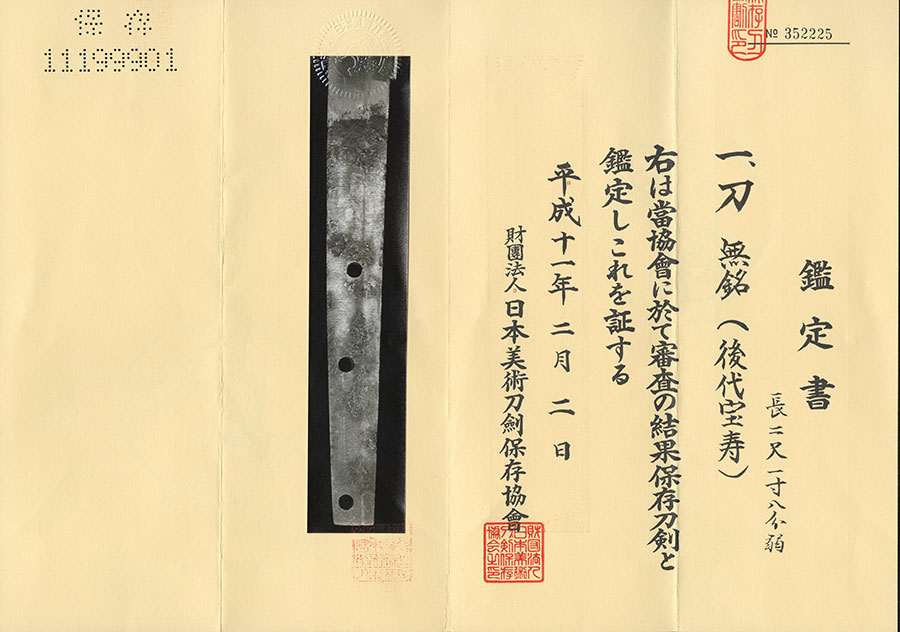 保存
11199901
№ 352225
鑑定書
長二尺一寸八分弱
一、刀 無銘(後代宝寿)
右は當協會に於て審査の結果保存刀剣と
鑑定しこれを証する
平成十一年二月二日
財團法人日本美術刀劍保存協會
財団法人
日本美術
刀剣保存
協会之印